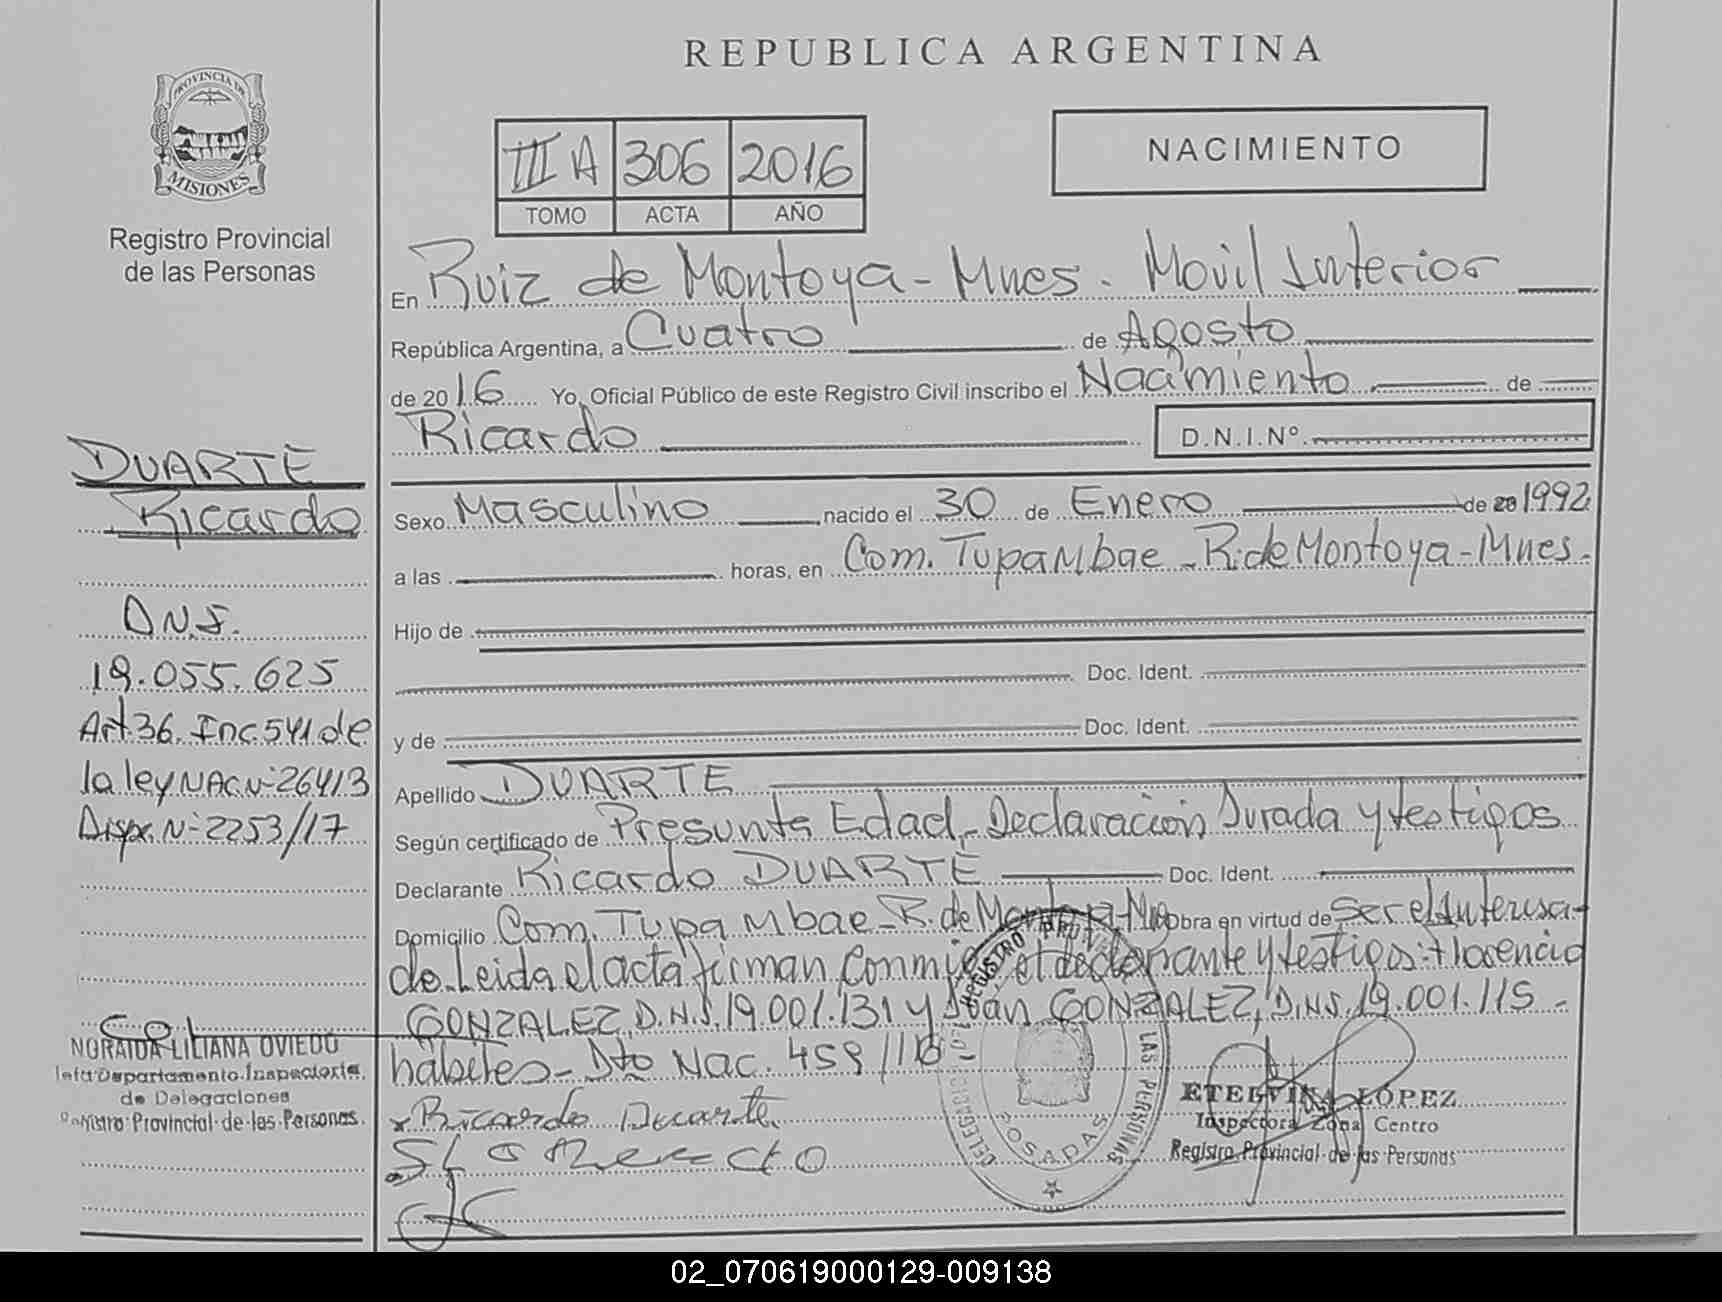 REPUBLICA ARGENTINA
PROVINCIA DE
MISIONES
Registro Provincial
de las Personas
III A 306 2016
TOMO ACTA AÑO
NACIMIENTO
En Ruiz de Montoya - Mnes. Movil Interior
República Argentina, a Cuatro de Agosto
de 2016 Yo, Oficial Público de este Registro Civil inscribo el Nacimiento de
Ricardo D.N.I.Nº
DUARTE
Ricardo
Sexo Masculino nacido el 30 de Enero de 20 1992
a las horas, en Com. Tupa Mbae - R. de Montoya - Mnes.
D.N.I.
19.055.625
Art 36. Inc. 541 de
la ley NAC Nº 26413
Dispc. Nº 2253/17
Hijo de
Doc. Ident.
y de Doc. Ident.
Apellido DUARTE
Según certificado de Presunta Edad - Declaración Jurada y testigos
Declarante Ricardo DUARTE Doc. Ident.
Domicilio Com. Tupa Mbae - R. de Montoya - Mn obra en virtud de Ser el Interesa-
do. Leida el acta firman conmigo el declarante y testigos: Florencio
GONZALEZ, D.N.I. 19.001.131 y Iván GONZALEZ, D.N.I. 19.001.115 -
habiles - Dto Nac. 459/116
Ricardo Duarte
NORAIDA LILIANA OVIEDO
Jefa Departamento Inspectoria
de Delegaciones
Registro Provincial de las Personas
REGISTRO PROVINCIAL DE LAS PERSONAS
POSADAS
ETELVINA LÓPEZ
Inspectora Zona Centro
Registro Provincial de las Personas
02_070619000129-009138